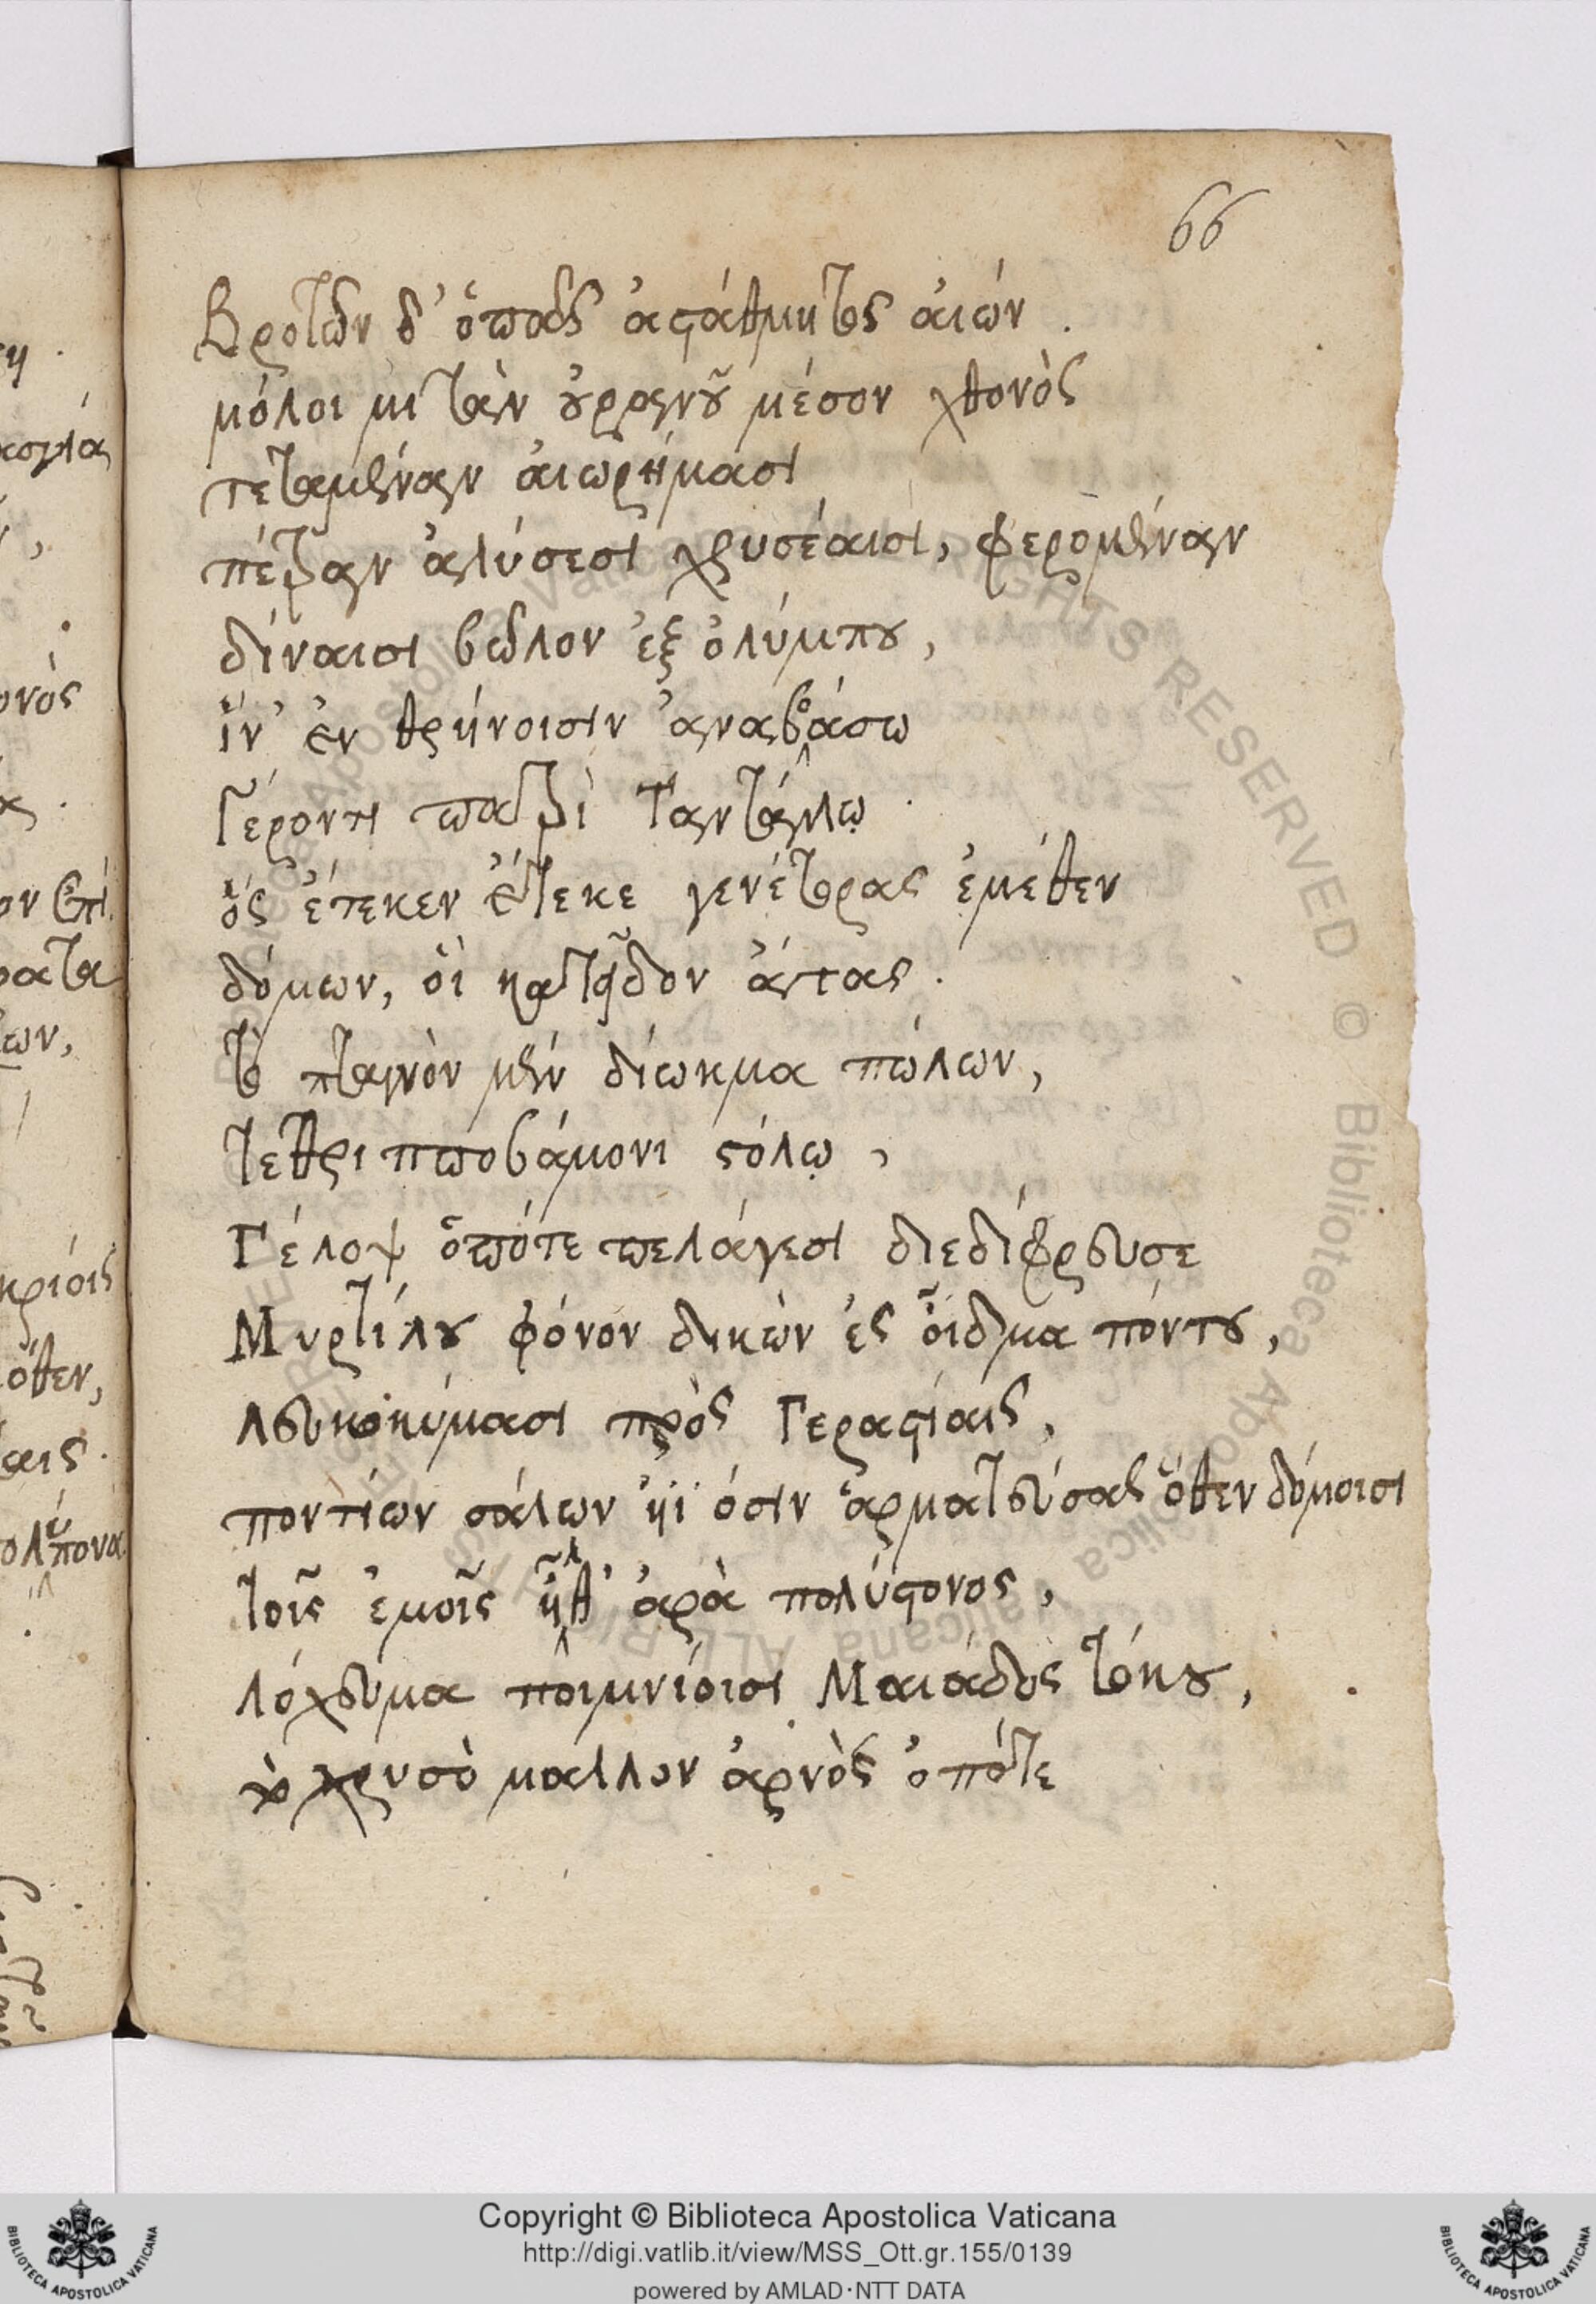 66
Βροτῶν δ' ὅπας ἀστάθμητος ἀιών.
μόλοι μι τὰν ὀυρανοῦ μέσον χθονὸς
τεταμέναν ἀιωρήμασι
πέτραν ἁλύσεσι χρυσέαισι, φερομέναν
δίναισι βῶλον ἐξ ὀλύμπου,
ἵν' ἐν θρήνοισιν ἀναβοάσω
Γέροντι πατρὶ Ταντάλῳ.
ὃς ἔτεκεν ἔτεκε γενέτορας ἐμέθεν
δόμων, οἳ κατεῖδον ἄτας.
τὸ πτανὸν μὲν δίωκμα πώλων,
τεθριπποβάμονι στόλῳ,
Πέλοψ ὁπότε πελάγεσι διεδίφρευσε
Μυρτίλου φόνον δικὼν ἐς οἶδμα πόντου,
λευκοκύμασι πρὸς Γεραστίαις,
ποντίων σάλων ἠϊόσιν ἁρματεύσας ὅθεν δόμοισι
τοῖς ἐμοῖς ἦλθ' ἀρὰ πολύστονος,
λόχευμα ποιμνίοισι Μαιάδος τόκου,
τὸ χρυσόμαλλον ἀρνὸς ὁπότε
Copyright © Biblioteca Apostolica Vaticana
http://digi.vatlib.it/view/MSS_Ott.gr.155/0139
powered by AMLAD·NTT DATA